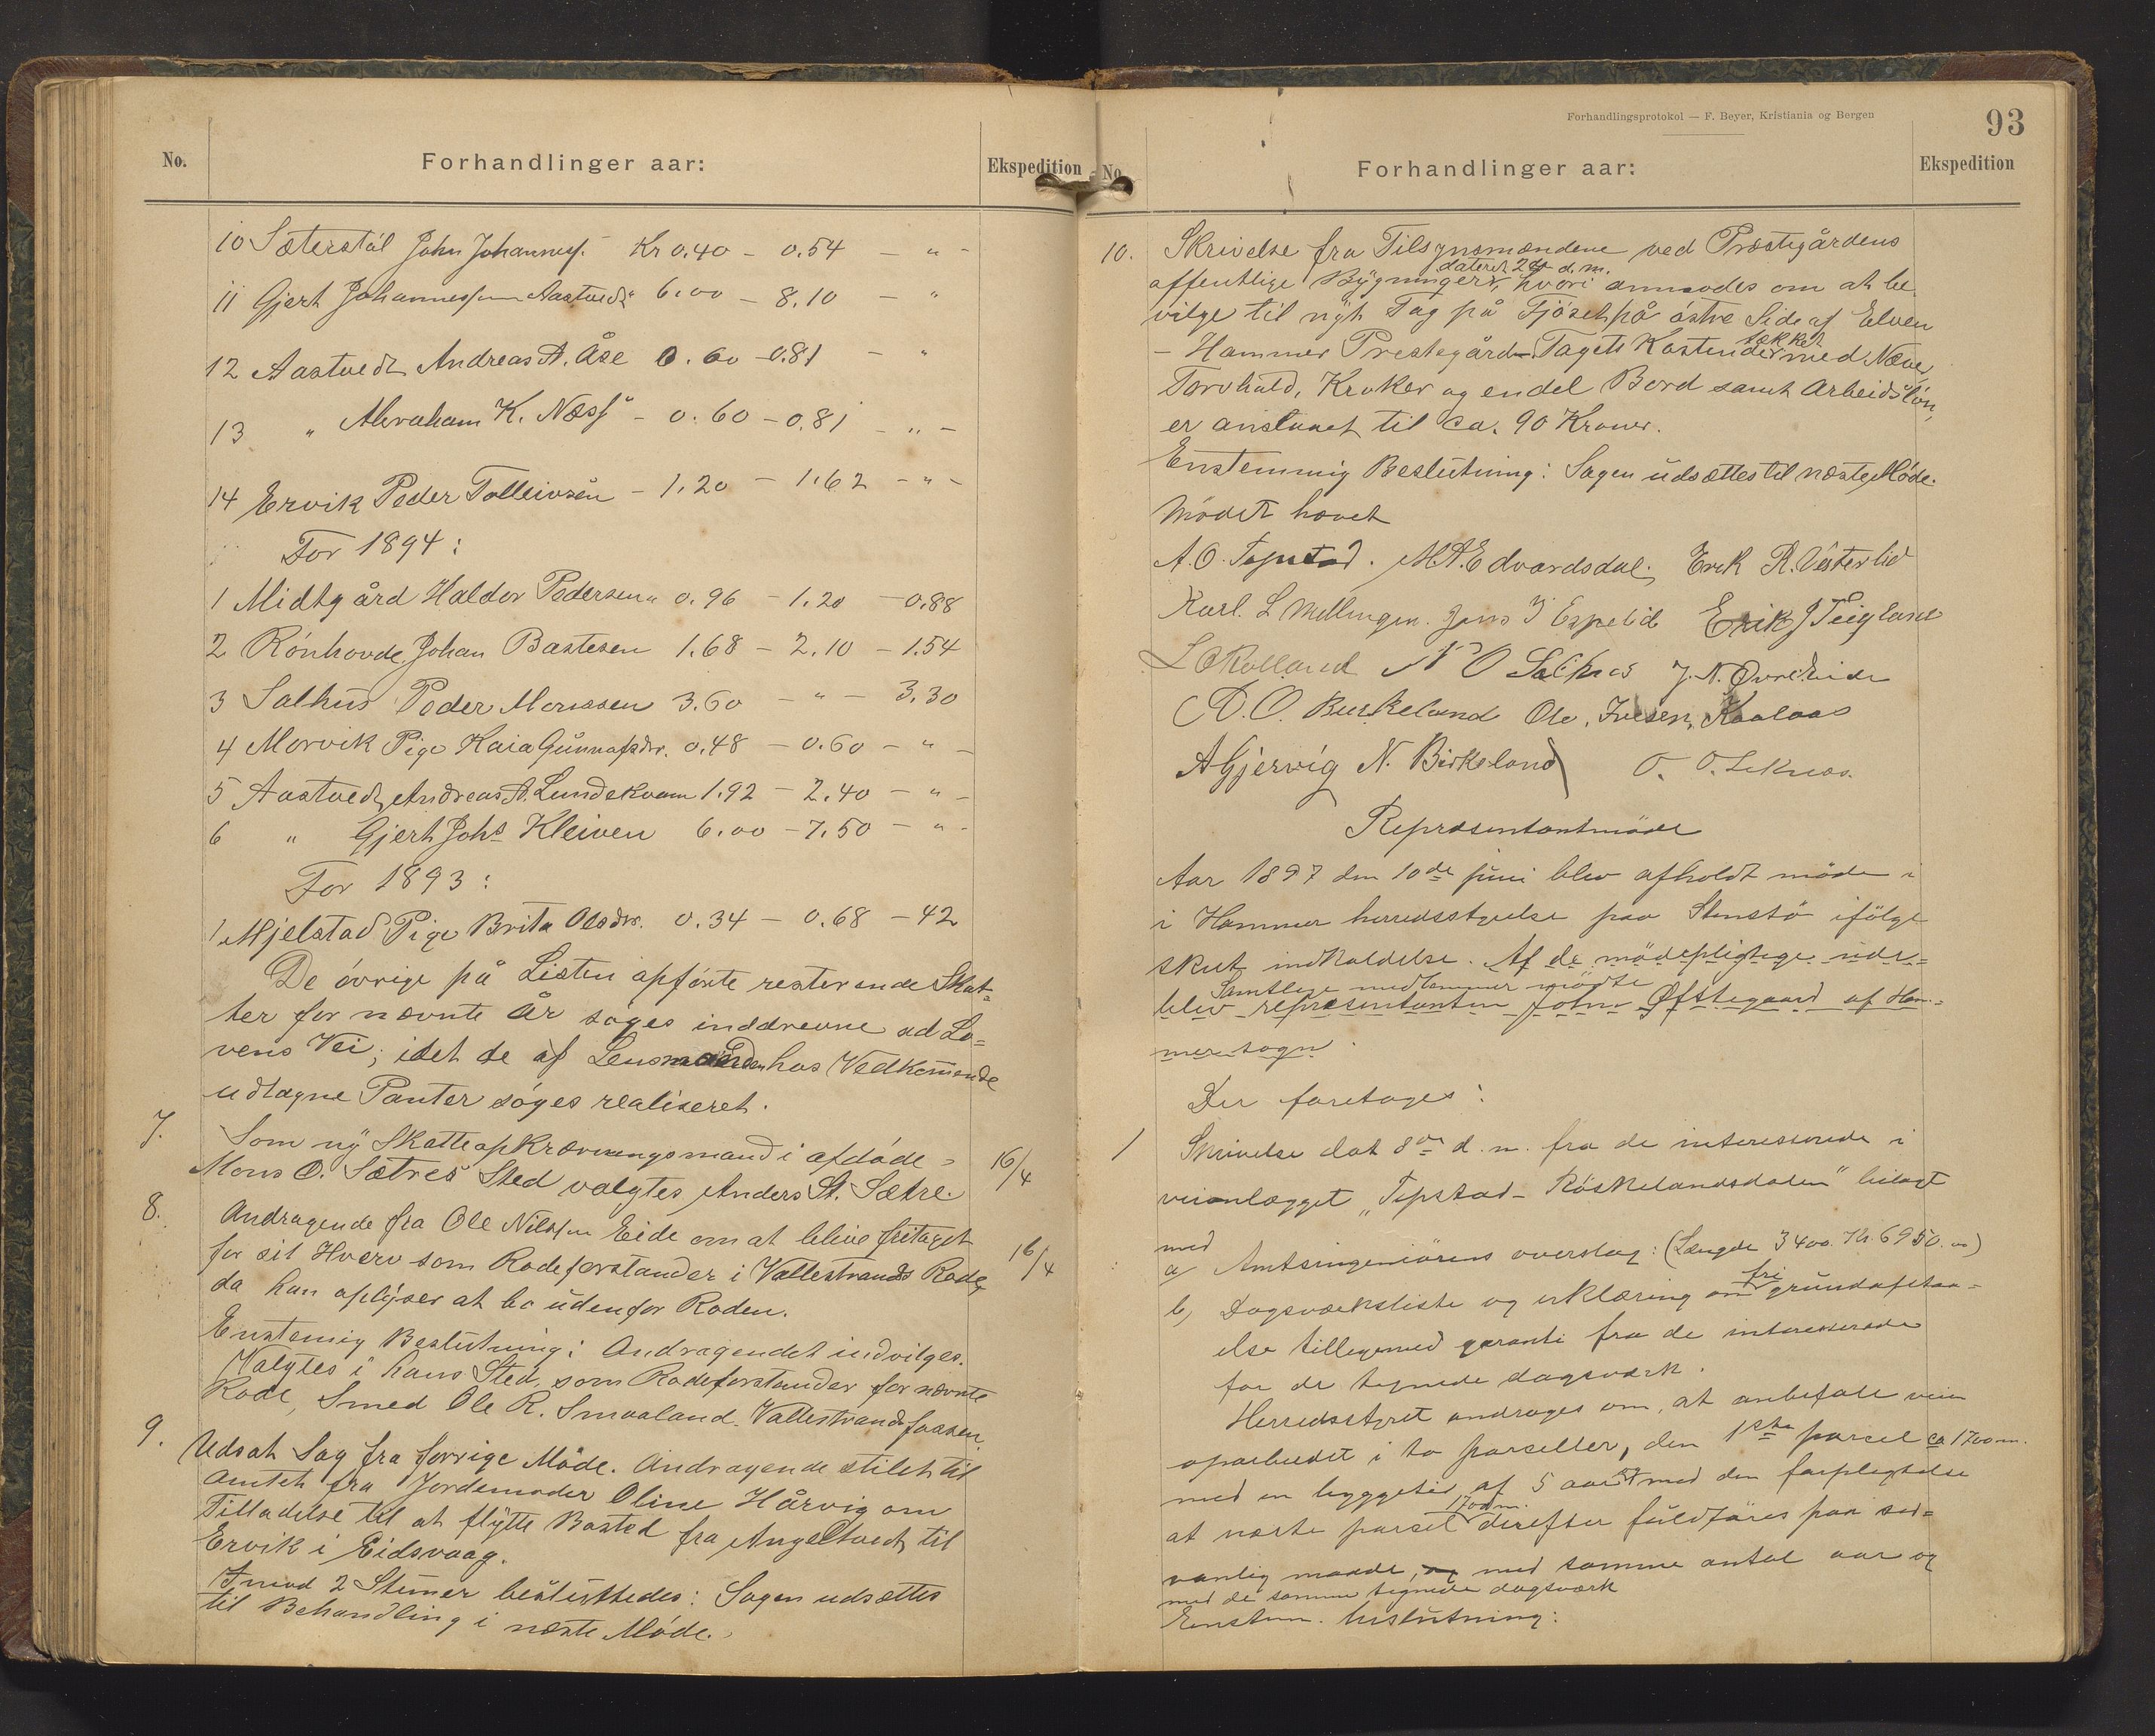 No. Forhandlinger aar: Ekspedition
10 Sæterstøl John Johanness. Kr 0.40 - 0.54 - " -
11 Gjert Johannessen Aastvedt 6.00 - 8.10 - "
12 Aastvedt Andreas A. Åse 0.60 - 0.81 - "
13 " Abraham K. Næss - 0.60 - 0.81 - " -
14 Ervik Peder Tolleivsen - 1.20 - 1.62 - " -
For 1894:
1 Midtgård Haldor Pedersen 0.96 - 1.20 - 0.88
2 Rönhovde Johan Bastesen 1.68 - 2.10 - 1.54
3 Salhus Peder Monssen 3.60 - " - 3.30
4 Morvik Pige Kaia Gunnarsdtr. 0.48 - 0.60 - " -
5 Aastvedt, Andreas A. Lundekvam 1.92 - 2.40 - " -
6 " Gjert Johs Kleiven 6.00 - 7.50 - " -
For 1893:
1 Mjelstad Pige Brita Olsdtr. 0.34 - 0.68 - 42
De óvrige på Listen opfórte resterende Skat-
ter for nævnte År søges inddrevne ad Lo=
vens Vei; idet de af Lensmanden hos Vedkommende
udtagne Panter søges realiseret.
7. Som ny Skatteopkrævningsmand i afdóde =
Mons O. Sætres Sted valgtes Anders St. Sætre. 16/4
8. Andragende fra Ole Nilssen Eide om at blive fritaget
for sit Hverv som Rodeforstander i Vallestrands Rode, 16/4
da han oplyser at bo udenfor Roden.
Enstemig Beslutning: Andragendet indvilges.
Valgtes i hans Sted, som Rodeforstander for nævnte
Rode, Smed Ole R. Smaaland. Vallestrandsfossen.
9. Udsat Sag fra forrige Móde. Andragende stilet til
Amtet fra Jordemoder Oline Hårvig om
Tilladelse til at flytte Bosted fra Angeltvedt til
Ervik i Eidsvaag.
Imod 2 Stemer besluttedes: Sagen udsættes
til Behandling i næste Móde.
Forhandlingsprotokol — F. Beyer, Kristiania og Bergen
93
No. Forhandlinger aar: Ekspedition
10. Skrivelse fra Tilsynsmændene ved Præstegårdens
dateret 2 d. m.
offentlige Bygninger, hvori anmodes om at be-
vilge til nyt Tag på Fjöset på östre Side af Elven
tækket
- Hammer Prestegård - Tagets Kostende med Næver,
Torvhald, Kroker og endel Bord samt Arbeidslón,
er anslaaet til ca. 90 Kroner.
Enstemmig Beslutning: Sagen udsættes til næste Móde.
Mødet hævet
A. O. Tepstad. M A. Edvardsdal. Erik R. Vesterlid
Karl. L Mellingen. Jens J Espelid Erik J Teigland
L O Rolland N O Salhus J. N. Øvreeide
A. O. Burkeland Ole Iversen Kaalaas
A Gjervig N. Birkeland O. O. Leknes.
Repræsentantmöde
Aar 1897 den 10de juni blev afholdt möde i
i Hammer herredsstyrelse paa Stenstö ifölge
skeet indkaldelse. Af de mödepligtige ude=
Samtlige medlemmer mödte
blev repræsentanten John Øfstegaard af Ham=
mer sogn.
Der foretoges:
1 Skrivelse dat 8de d. m. fra de interesserede i
veianlægget „Tepstad - Röskelandsdalen" bilagt
med
a, Amtsingeniörens overslag: (Længde 3400. Kr. 6950.00)
fri
b, Dagsværksliste og erklæring om grundafstaa-
else tilligemed garanti fra de interesserede
for de tegnede dagsværk.
Herredsstyret andrages om, at anbefale veien
oparbeidet i to parseller, den 1ste parsel ca 1700 m.
med en byggetid af 5 aar med den forpligtelse
1700 m.
at næste parsel derefter fuldföres paa sed=
vanlig maade, med samme antal aar og
med de samme tegnede dagsværk
Enstem. beslutning: